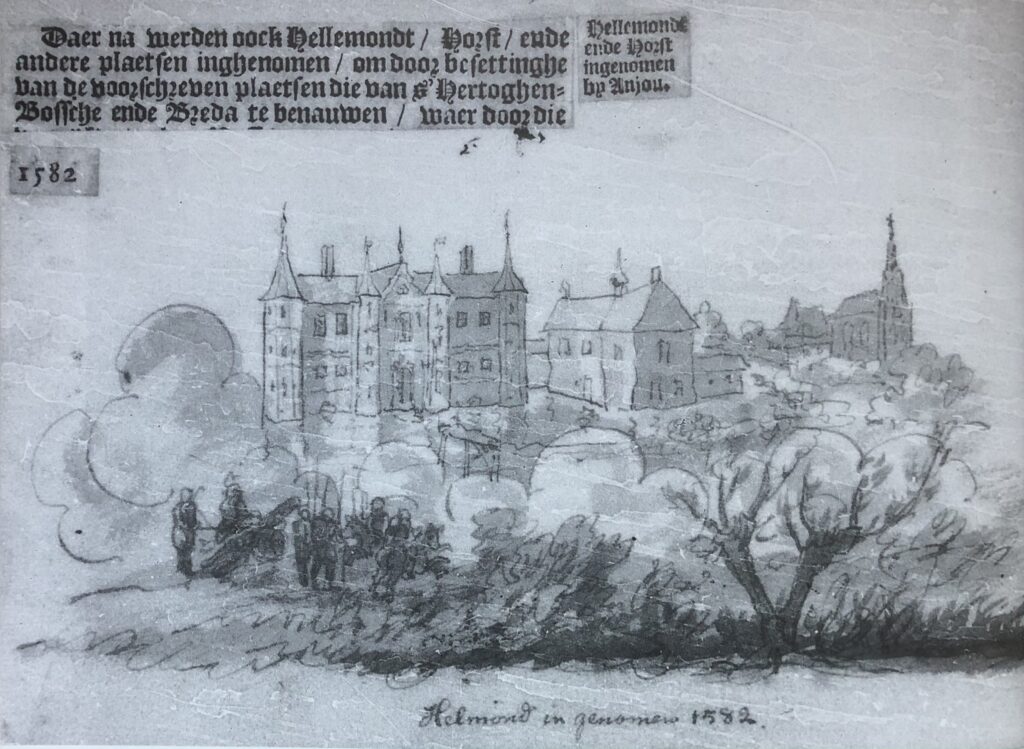 Daer na werden oock Hellemondt / Horst / ende
andere plaetsen inghenomen / om door besettinghe
van de voorschreven plaetsen die van s'Hertoghen-
Bossche ende Breda te benauwen / waer door die
Hellemondt
ende Horst
ingenomen
by Anjou.
1582
Helmond in genomen 1582.